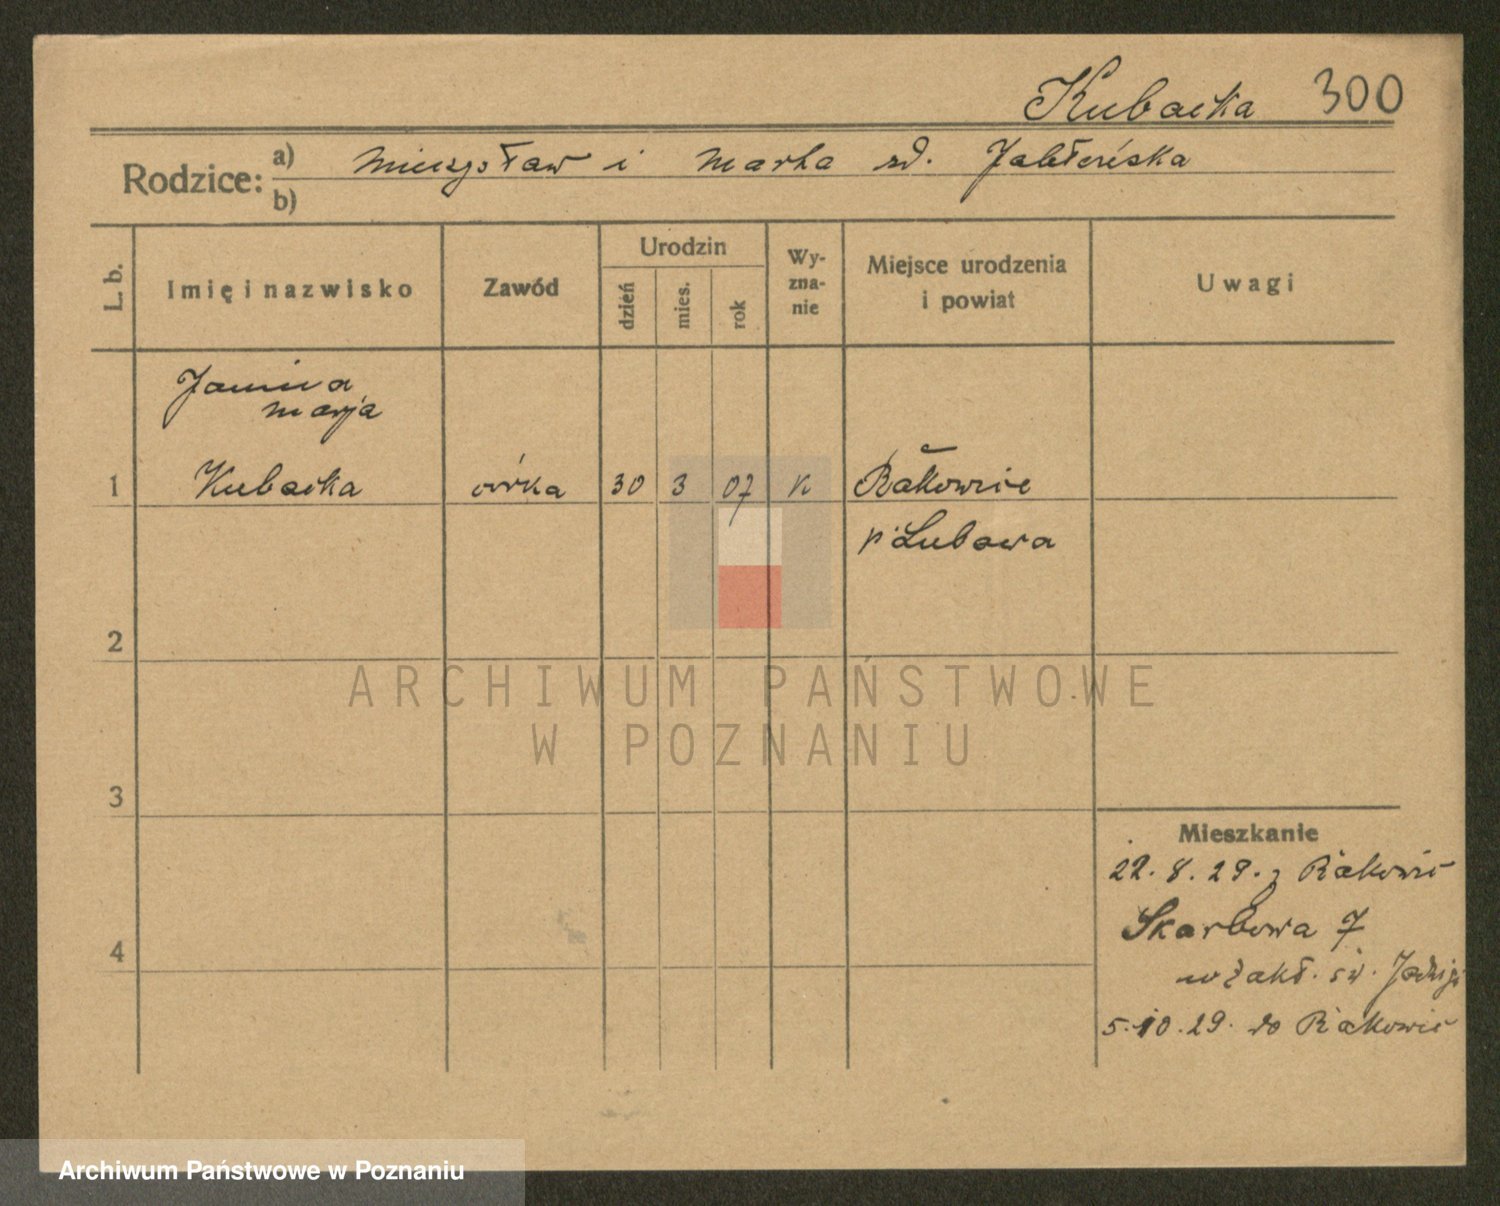 Kubacka 300
Rodzice: a) Mieczysław i Marta zd. Jabłońska
b)
L. b. Imię i nazwisko Zawód Urodzin dzień mies. rok Wy-zna-nie Miejsce urodzenia i powiat Uwagi
Janina
Marja
1 Kubacka córka 30 3 07 k Rakowice
p. Lubawa
2
ARCHIWUM PAŃSTWOWE
W POZNANIU
3
Mieszkanie
22. 8. 29. z Rakowic
Skarbowa 7
4
w Zakł. św. Jadwigi
5. 10. 29. do Rakowic
Archiwum Państwowe w Poznaniu